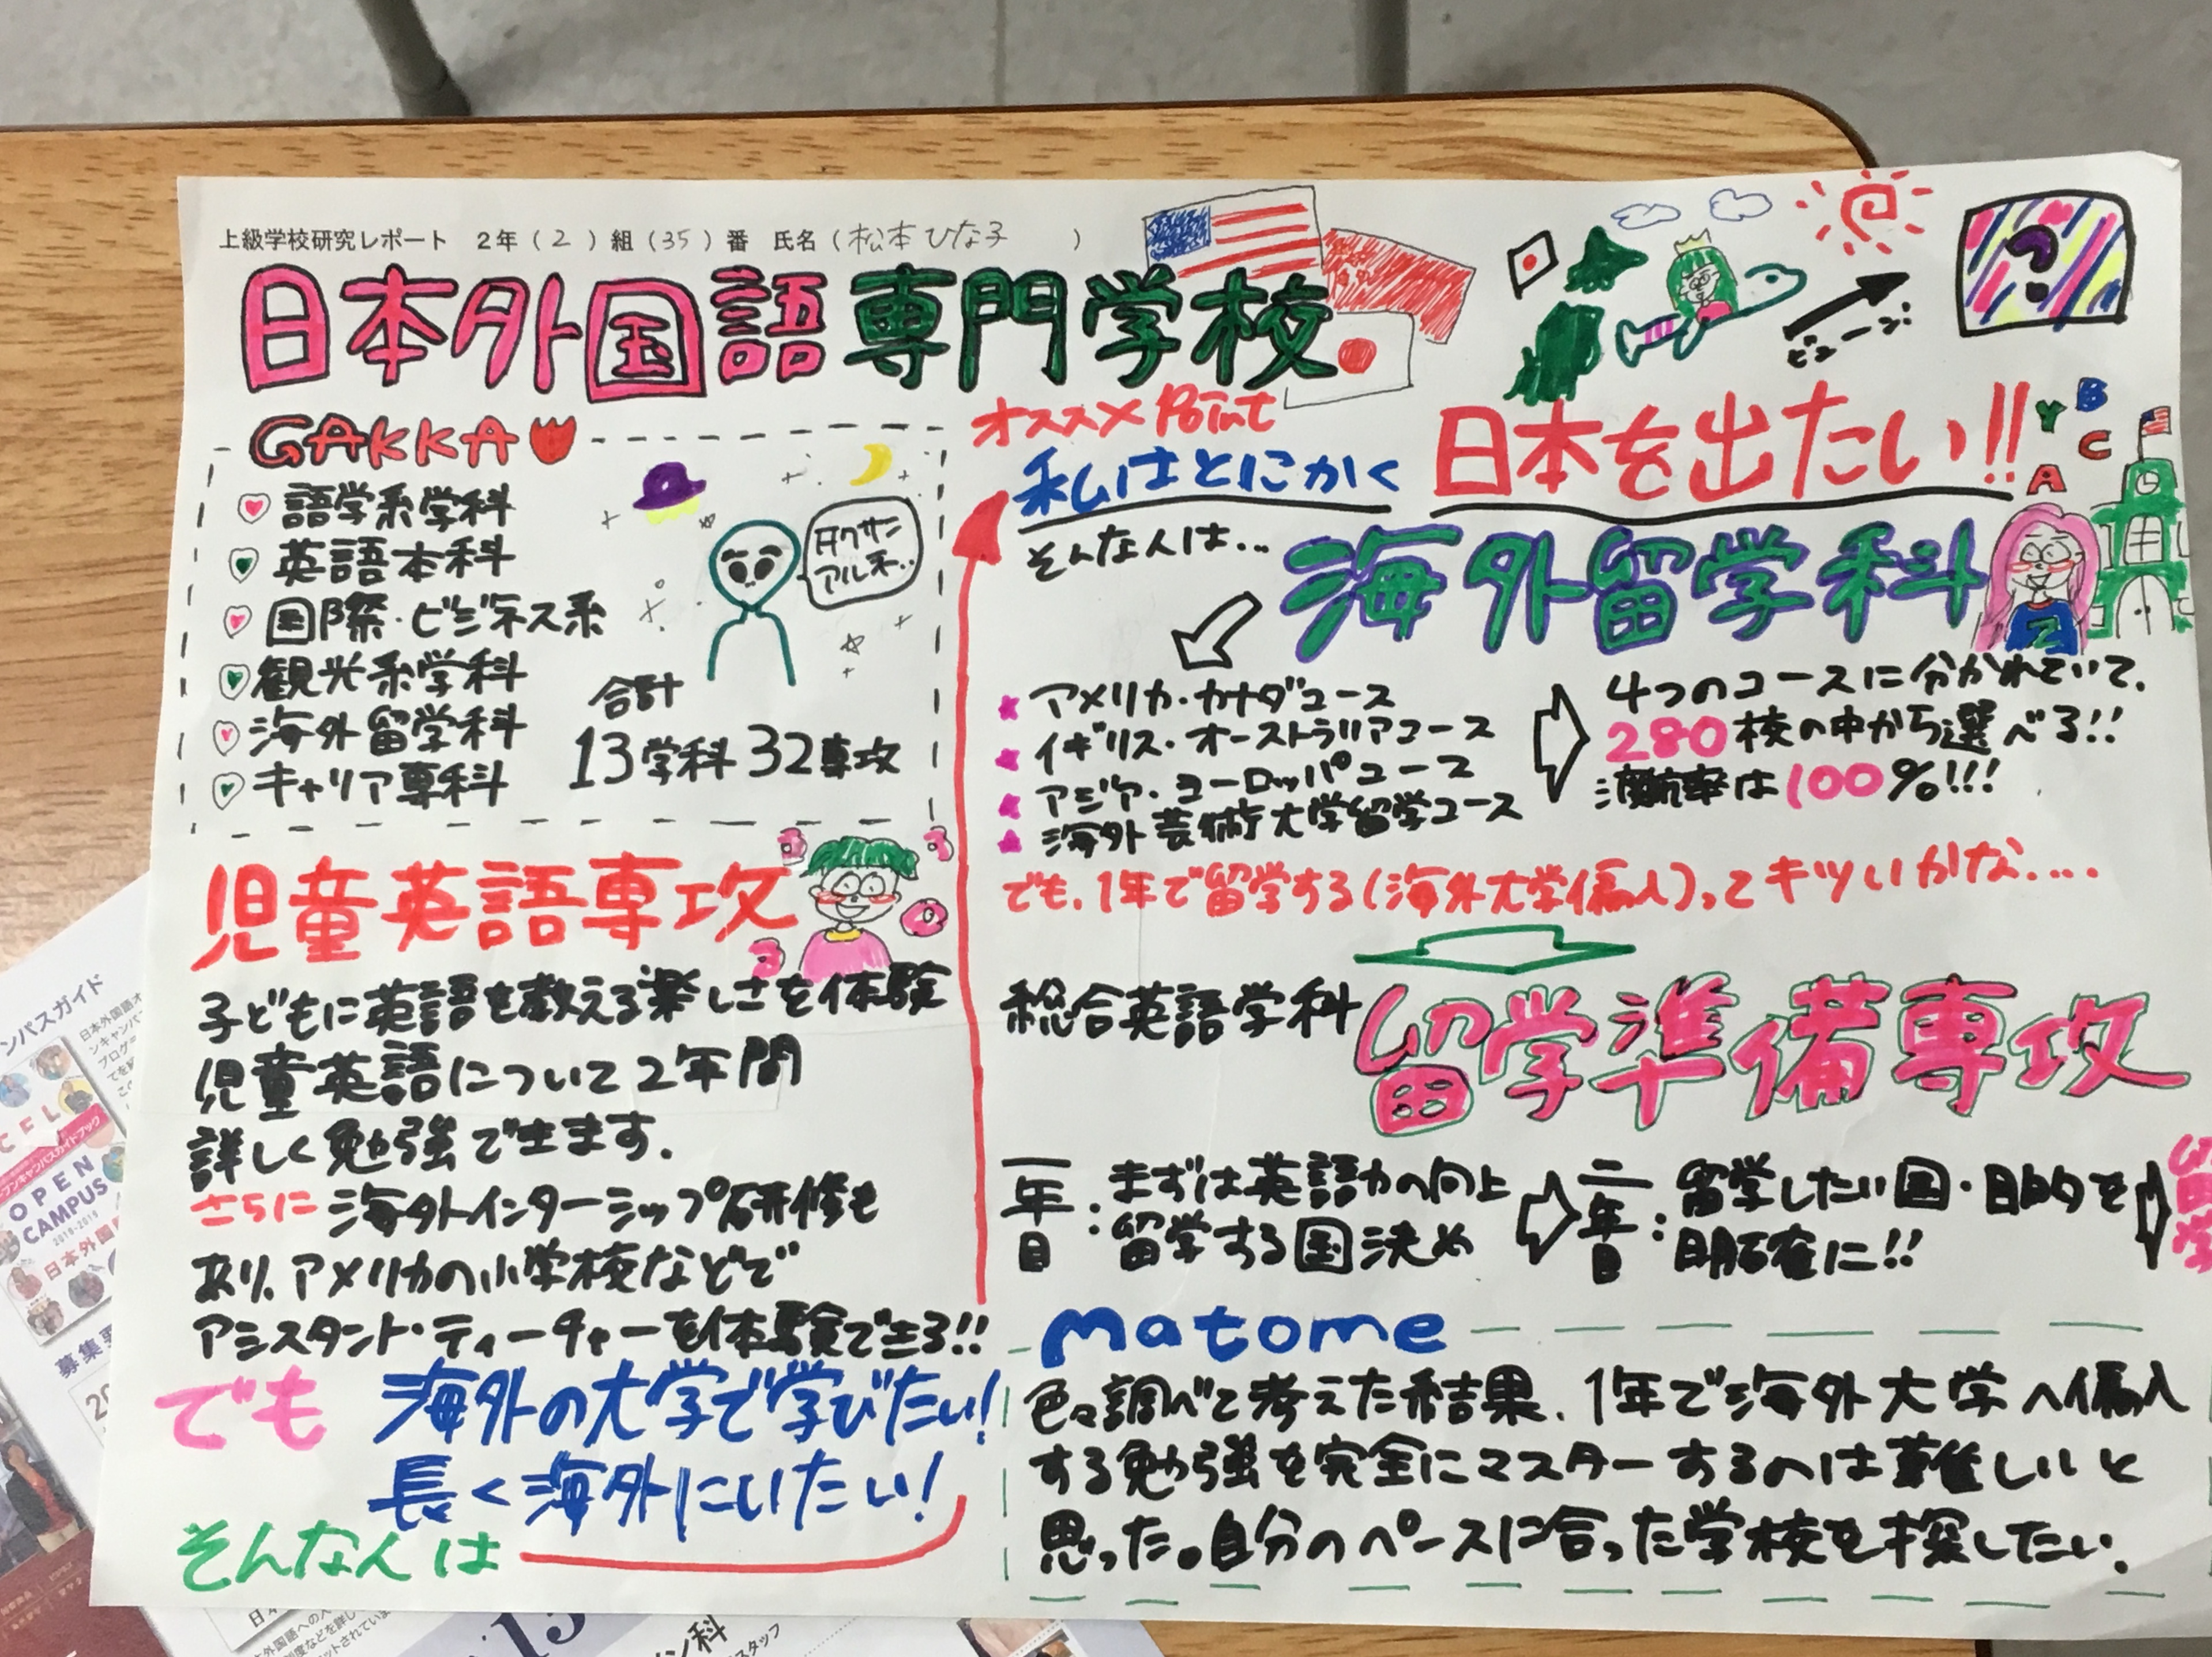 上級学校研究レポート 2年（2）組（35）番 氏名（松本ひな子）
日本外国語専門学校
GAKKA
語学系学科
英語本科
国際・ビジネス系
観光系学科
海外留学科
キャリア専科
タクサン
アルネ..
合計
13学科32専攻
児童英語専攻
子どもに英語を教える楽しさを体験
児童英語について2年間
詳しく勉強できます.
さらに海外インターシップ研修も
あり、アメリカの小学校などで
アシスタント・ティーチャーを体験できる!!
でも 海外の大学で学びたい!
長く海外にいたい!
そんな人は
オススメPoint
私はとにかく 日本を出たい!!
ビューン!
?
Y B
A C
そんな人は... 海外留学科
アメリカ・カナダコース
イギリス・オーストラリアコース
アジア・ヨーロッパコース
海外芸術大学留学コース
4つのコースに分かれていて、
280校の中から選べる!!
渡航率は100%!!!
でも、1年で留学する(海外大学編入)ってキツいかな....
総合英語学科 留学準備専攻
一年目:まずは英語力の向上
:留学する国決め
二年目:留学したい国・目的を
明確に!!
留学
matome
色々調べて考えた結果、1年で海外大学へ編入
する勉強を完全にマスターするのは難しいと
思った。自分のペースに合った学校を探したい.
ンパスガイド
OPEN
CAMPUS
2018-2019
日本外国